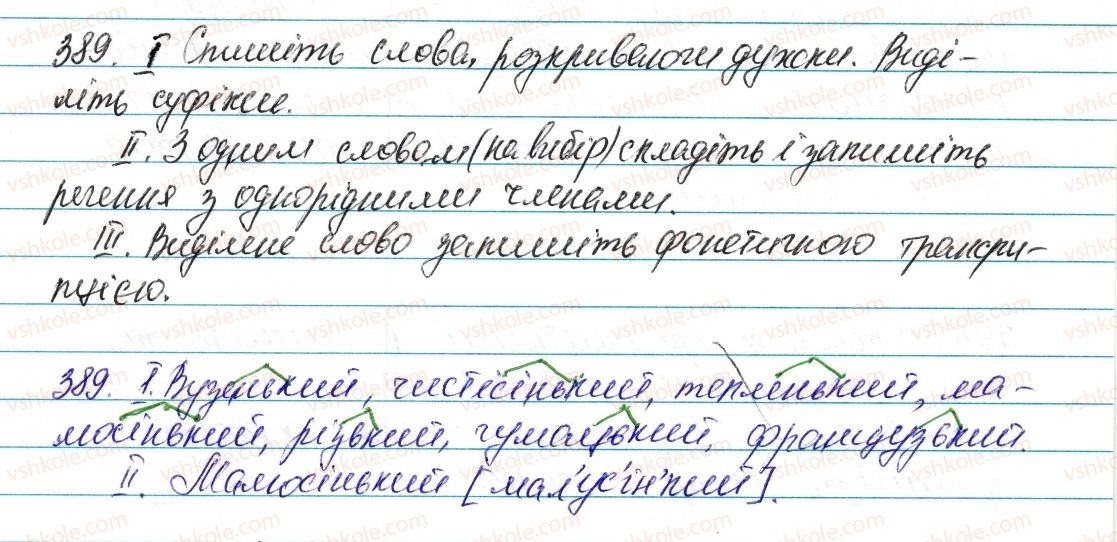 389. I Спишіть слова, розкриваючи дужки. Виді-
літь суфікси.
II. З одним словом (на вибір) складіть і запишіть
речення з однорідними членами.
III. Виділене слово запишіть фонетичною транскри-
пцією.
389. I. Вузенький, чистісінький, тепленький, ма-
люсінький, різький, чумацький, французький.
II. Малюсінький [мал'ус'ін'кий].